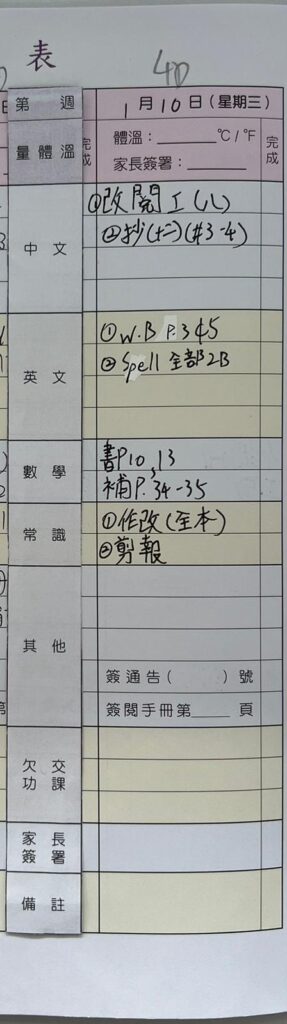 表
4D
第 週
1月10日(星期三)
量體溫
體溫：______°C/°F
家長簽署：______
完成
完成
中文
①改閱工(八)
②抄(十二)(#3-4)
英文
① W.B P.3 4 5
② Spell 全部2B
數學
書P10,13
補P.34-35
常識
①作改(至本)
②剪報
其他
簽通告( )號
簽閱手冊第____頁
欠交功課
家長簽署
備註